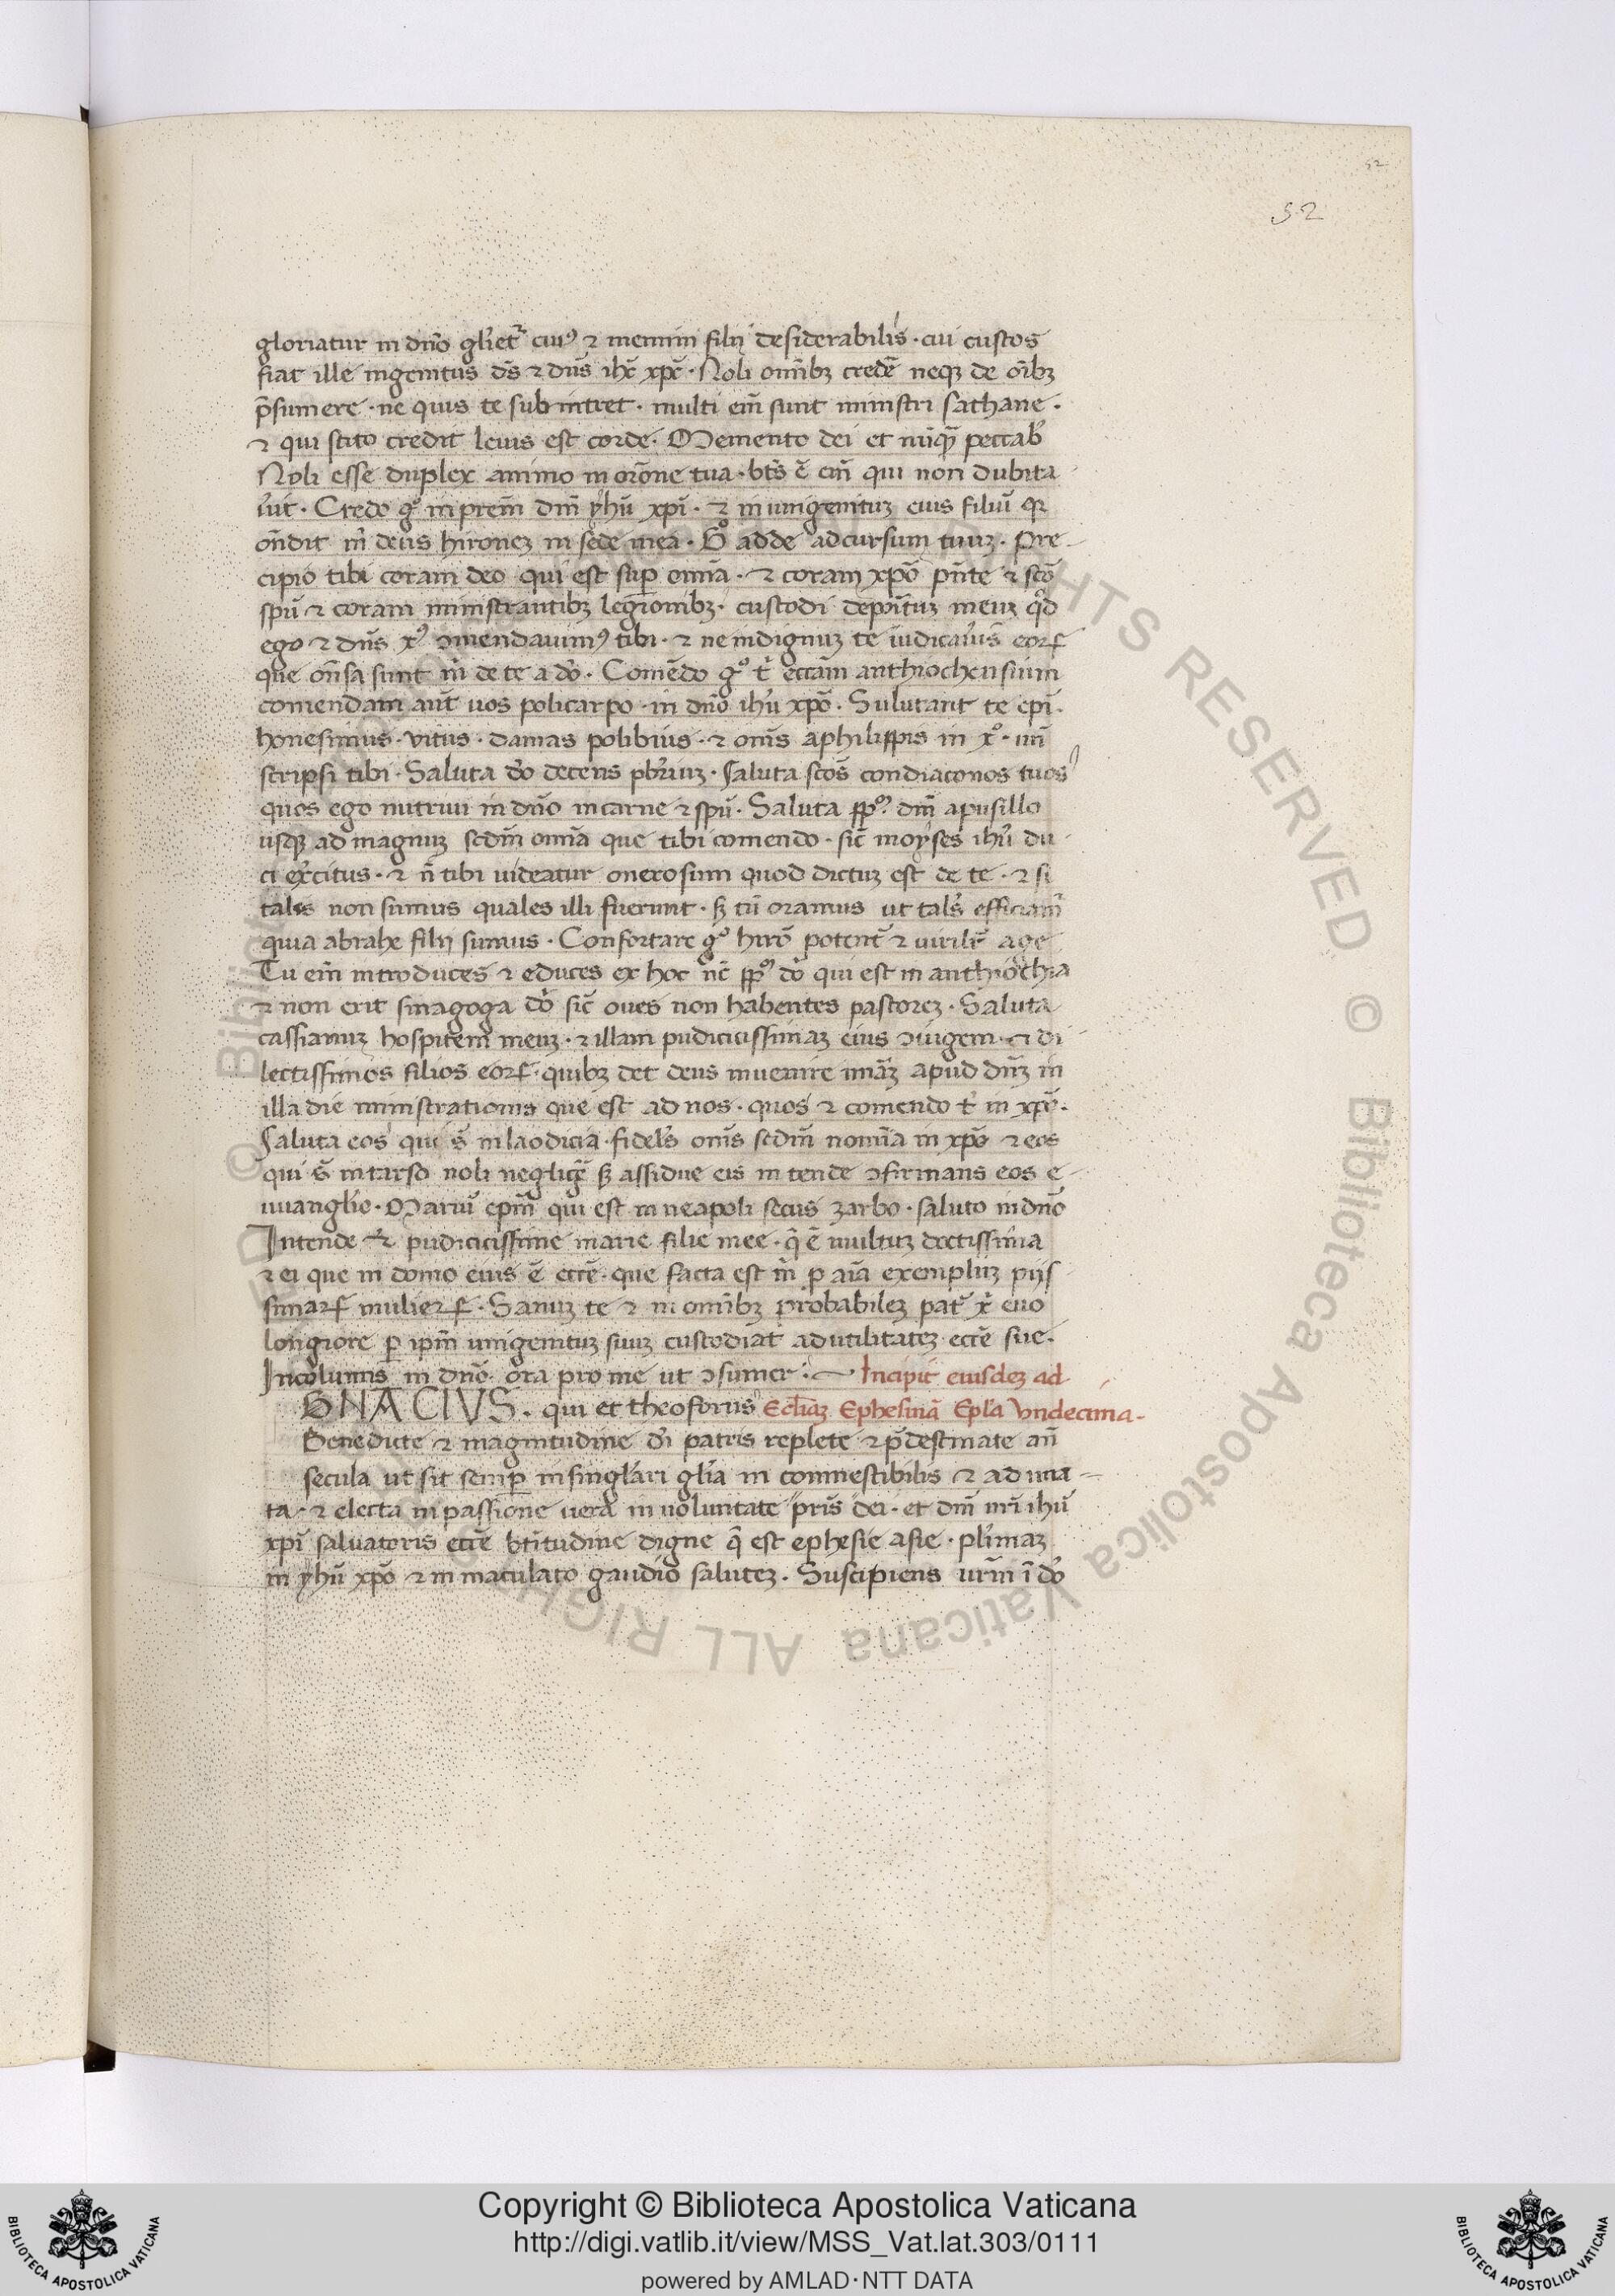 52
52
gloriatur in dn̄o glīet᷑ cuiꝰ ⁊ memini filij desiderabilis · cui custos
fiat ille ingenitus ds̄ ⁊ dn̄s ihc̄ xpc̄ · Noli omībꝫ credē neqꝫ de oībꝫ
p̄sumere · ne quis te sub intret · multi em̄ sunt ministri sathane ·
⁊ qui scito credit levis est corde · Memento dei et nūqꝫ peccab̄
Noli esse duplex animo in orōne tua · bt̄s ē em̄ qui non dubita
v̄it · Credo gͦ in prem̄ dm̄ yhū xpī · ⁊ in unigenituꝫ eius filiū qꝛ
on̄dit m̄ deus hironeꝫ in sede mea · Gͦ adde ad cursum tuuꝫ · Pre
cipio tibi coram deo qui est sup̄ omīa · ⁊ coram xpō pn̄te ⁊ scō
spū ⁊ coram ministrantibꝫ legionibꝫ · custodi depoītuꝫ meuꝫ qd̄
ego ⁊ dn̄s xꝰ ꝯmendavimꝰ tibi · ⁊ ne indignuꝫ te iudicav̄is eoꝝ
que on̄sa sunt m̄ de te a do̅ · Comēdo gͦ t̄ eccām anthiochensium
comendam aūt vos policarpo in dn̄o ihū xpō · Salutant te epī ·
honesimus · vitus · damas polibius · ⁊ oms̄ aphilippis in xͦ · un̄
scripsi tibi · Saluta do̅ decens pbr̄iuꝫ · Saluta scōs condiaconos tuos
quos ego nutrivi in dn̄o in carne ⁊ spū · Saluta pp̄ꝫ dm̄ apusillo
usqꝫ ad magnuꝫ scdm̄ omīa que tibi comendo · sic̄ moyses ihū du
ci exc̄itus · ⁊ n̄ tibi videatur onerosum quod dictuꝫ est de te · ⁊ si
tales non sumus quales illi fuerunt · sꝫ tn̄ oramus ut tals̄ efficiam᷑
quia abrahe filij sumus · Confortare gͦ hirō potent᷑ ⁊ virilit᷑ age
Tu em̄ introduces ⁊ educes ex hoc nc̄ pp̄ꝫ do̅ qui est in anthiochia
⁊ non erit sinagoga do̅ sic̄ oves non habentes pastoreꝫ · Saluta
cassianuꝫ hospitem meuꝫ · ⁊ illam pudicicissimaꝫ eius ꝯiugem · ⁊ di
lectissimos filios eoꝝ · quibꝫ det deus invenire mīaꝫ apud dn̄ꝫ in
illa die ministrationis que est ad nos · quos ⁊ comendo t̄ in xpō ·
Saluta eos qui s̄ in laodicia · fidels̄ oms̄ scdm̄ nomīa in xpō ⁊ eos
qui s̄ in tarso noli negligē sꝫ assidue eis in tende ꝯfirmans eos e
vvanglio · Mariū epm̄ qui est in neapoli secus zarbo · saluto in dn̄o
Intende et pudicicissime marie filie mee · q̄ ē multuꝫ doctissima
⁊ ei que in domo eius ē ecc̄e · que facta est m̄ p aīa exempluꝫ piis
simaꝝ mulieꝝ · Sanuꝫ te ⁊ in omībꝫ probabileꝫ pat᷑ x̄ evo
longiore ꝑ ipm̄ unigenituꝫ suuꝫ custodiat ad utilitateꝫ ecc̄e sue ·
Incolumis in dn̄o · ora pro me ut ꝯsumer · Incipit eiusdeꝫ ad
GNACIVS · qui et theoforus Eccl̄iaꝫ Ephesinā Epl̄a Vndecima ·
Benedicte ⁊ magnitudine dī patris replete ⁊ p̄destinate an̄
secula ut sit semꝑ in singl̄ari glīa in comnestibilis ⁊ ad una
ta · ⁊ electa in passione vera in voluntate pr̄is dei · et dm̄ nr̄i ihū
xpī salvatoris ecc̄e bt̄itudine digne q̄ est ephesie asie · pl̄imaꝫ
in yhū xpō ⁊ in maculato gaudio saluteꝫ · Suscipiens vr̄m ī do̅
© Biblioteca Apostolica Vaticana ALL RIGHTS RESERVED
Copyright © Biblioteca Apostolica Vaticana
http://digi.vatlib.it/view/MSS_Vat.lat.303/0111
powered by AMLAD·NTT DATA
BIBLIOTECA APOSTOLICA VATICANA
BIBLIOTECA APOSTOLICA VATICANA